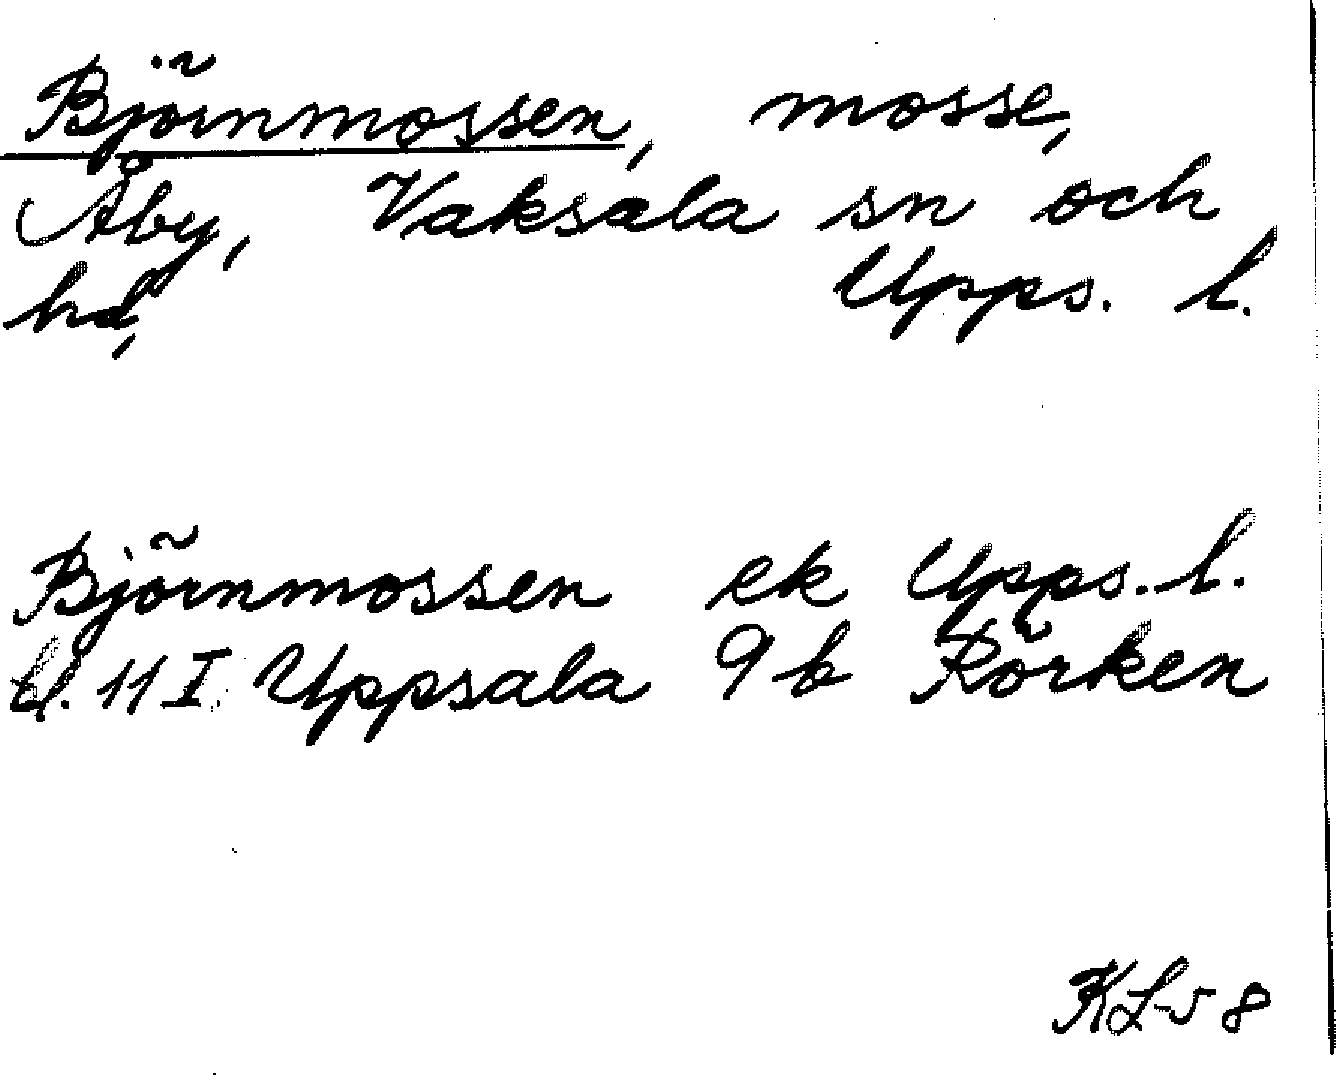 Björnmossen, mosse,
Åby, Vaksala sn och
hd, Upps. l.
Björnmossen ek Upps. l.
bl. 11 I Uppsala 9 b Rörken
KL 58